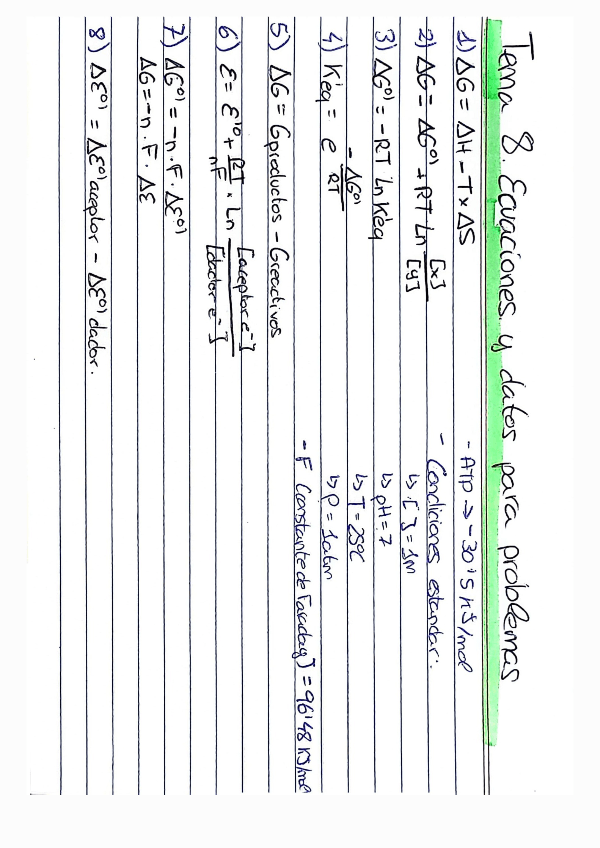 Tema 8. Ecuaciones y datos para problemas
1) ΔG = ΔH - T x ΔS
2) ΔG = ΔG°' + RT Ln [x]/[y]
3) ΔG°' = -RT Ln K'eq
4) K'eq = e^(-ΔG°'/RT)
5) ΔG = Gproductos - Greactivos
6) ε = ε'° + RT/nF · Ln [aceptor e⁻]/[dador e⁻]
7) ΔG°' = -n · F · Δε°'
ΔG = -n · F · Δε
8) Δε°' = Δε°' aceptor - Δε°' dador.
- ATP → -30'5 KJ/mol
- Condiciones estandar:
↳ [ ] = 1M
↳ pH = 7
↳ T = 25°C
↳ P = 1atm
- F (constante de Faraday) = 96'48 KJ/mol